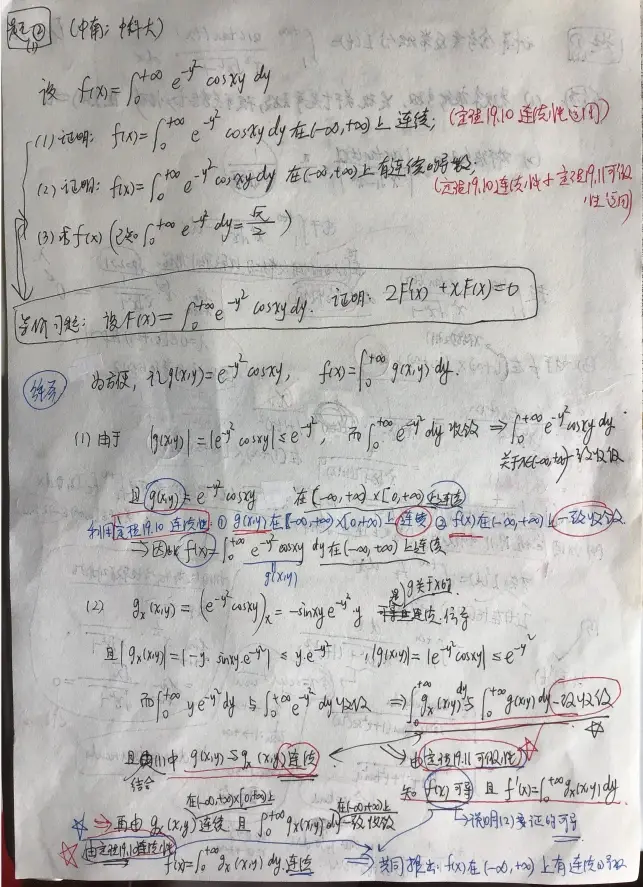 (中南; 中科大)
设 f(x)=∫₀^{+∞} e^{-y²} cosxy dy
(1) 证明: f(x)=∫₀^{+∞} e^{-y²} cosxy dy 在(-∞,+∞)上连续; (定理19.10连续性运用)
(2) 证明: f(x)=∫₀^{+∞} e^{-y²} cosxy dy 在(-∞,+∞)上有连续的导数; (定理19.10连续性+定理19.11可微性运用)
(3) 求f(x) (已知∫₀^{+∞} e^{-y²} dy=√π/2)
等价习题: 设F(x)=∫₀^{+∞} e^{-y²} cosxy dy. 证明: 2F'(x)+xF(x)=0
为方便, 记g(x,y)=e^{-y²}cosxy, f(x)=∫₀^{+∞} g(x,y) dy.
(1) 由于 |g(x,y)|=|e^{-y²}cosxy|≤e^{-y²}, 而∫₀^{+∞} e^{-y²} dy 收敛 ⇒ ∫₀^{+∞} e^{-y²}cosxy dy
关于x∈(-∞,+∞)一致收敛
且 g(x,y)=e^{-y²}cosxy 在(-∞,+∞)×[0,+∞)上连续
利用定理19.10连续性: ① g(x,y)在(-∞,+∞)×[0,+∞)上连续 ② f(x)在(-∞,+∞)上一致收敛.
⇒ 因此f(x)=∫₀^{+∞} e^{-y²}cosxy dy 在(-∞,+∞)上连续
g(x,y)
(2) gₓ(x,y)=(e^{-y²}cosxy)ₓ=-sinxy e^{-y²}·y g关于x的
且|gₓ(x,y)|=|-y·sinxy·e^{-y²}|≤y·e^{-y²}, |g(x,y)|=|e^{-y²}cosxy|≤e^{-y²}
而∫₀^{+∞} ye^{-y²}dy与∫₀^{+∞} e^{-y²}dy收敛 ⇒ ∫₀^{+∞} gₓ(x,y)dy与∫₀^{+∞} g(x,y)dy一致收敛
且由(1)中 g(x,y)与gₓ(x,y)连续 ⇒ 由定理19.11可微性
结合
知f(x)可导 且f'(x)=∫₀^{+∞} gₓ(x,y)dy
在(-∞,+∞)×[0,+∞)上 在(-∞,+∞)上
⇒ 再由gₓ(x,y)连续 且∫₀^{+∞} gₓ(x,y)dy一致收敛 → 说明(2)要证的可导
由定理19.10连续性 f'(x)=∫₀^{+∞} gₓ(x,y)dy.连续 ⇒ 共同推出: f(x)在(-∞,+∞)上有连续的导数